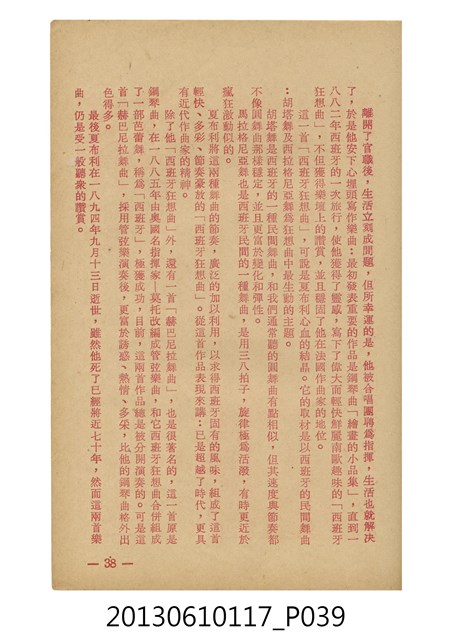 離開了官職後，生活立刻成問題，但所幸運的是，他被合唱團聘爲指揮，生活也就解決
了，於是他安下心埋頭寫作樂曲：最初發表重要的作品是鋼琴曲「繪畫的小品集」，直到一
八八二年西班牙的一次旅行，使他獲得了靈感，寫下了偉大而輕快鮮麗南歐趣味的「西班牙
狂想曲」，不但獲得樂壇上的讚賞，並且穩固了他在法國作曲家的地位。
這一首「西班牙狂想曲」，可說是夏布利心血的結晶。它的取材是以西班牙的民間舞曲
：胡塔舞及西拉格尼亞舞爲狂想曲中最生動的主題。
胡塔舞是西班牙的一種民間舞曲，和我們通常聽的圓舞曲有點相似，但其速度與節奏都
不像圓舞曲那樣穩定，並且更富於變化和彈性。
馬拉格尼亞舞也是西班牙民間的一種舞曲，是用三八拍子，旋律極爲活潑，有時更近於
瘋狂激動似的。
夏布利將這兩種舞曲的節奏，廣泛的加以利用，以求得西班牙固有的風味，組成了這首
輕快、多彩、節奏豪放的「西班牙狂想曲」。從這首作品表現來講：已是超越了時代，更具
有近代作曲家的精神。
除了他「西班牙狂想曲」外，還有一首「赫巴尼拉舞曲」，也是很著名的，這一首原是
鋼琴曲，在一八八五年由奧國名指揮家—莫托改編成管弦樂曲，和它西班牙狂想曲合併組成
了一部芭蕾舞，稱爲「西班牙」，極獲成功，目前，這兩首作品總是被分開演奏的。可是這
首「赫巴尼拉舞曲」，採用管弦樂演奏後，更富於誘惑、熱情、多采，比他的鋼琴曲格外出
色得多。
最後夏布利在一八九四年九月十三日逝世，雖然他死了已經將近七十年，然而這兩首樂
曲，仍是受一般聽衆的讚賞。
— 38 —
20130610117_P039